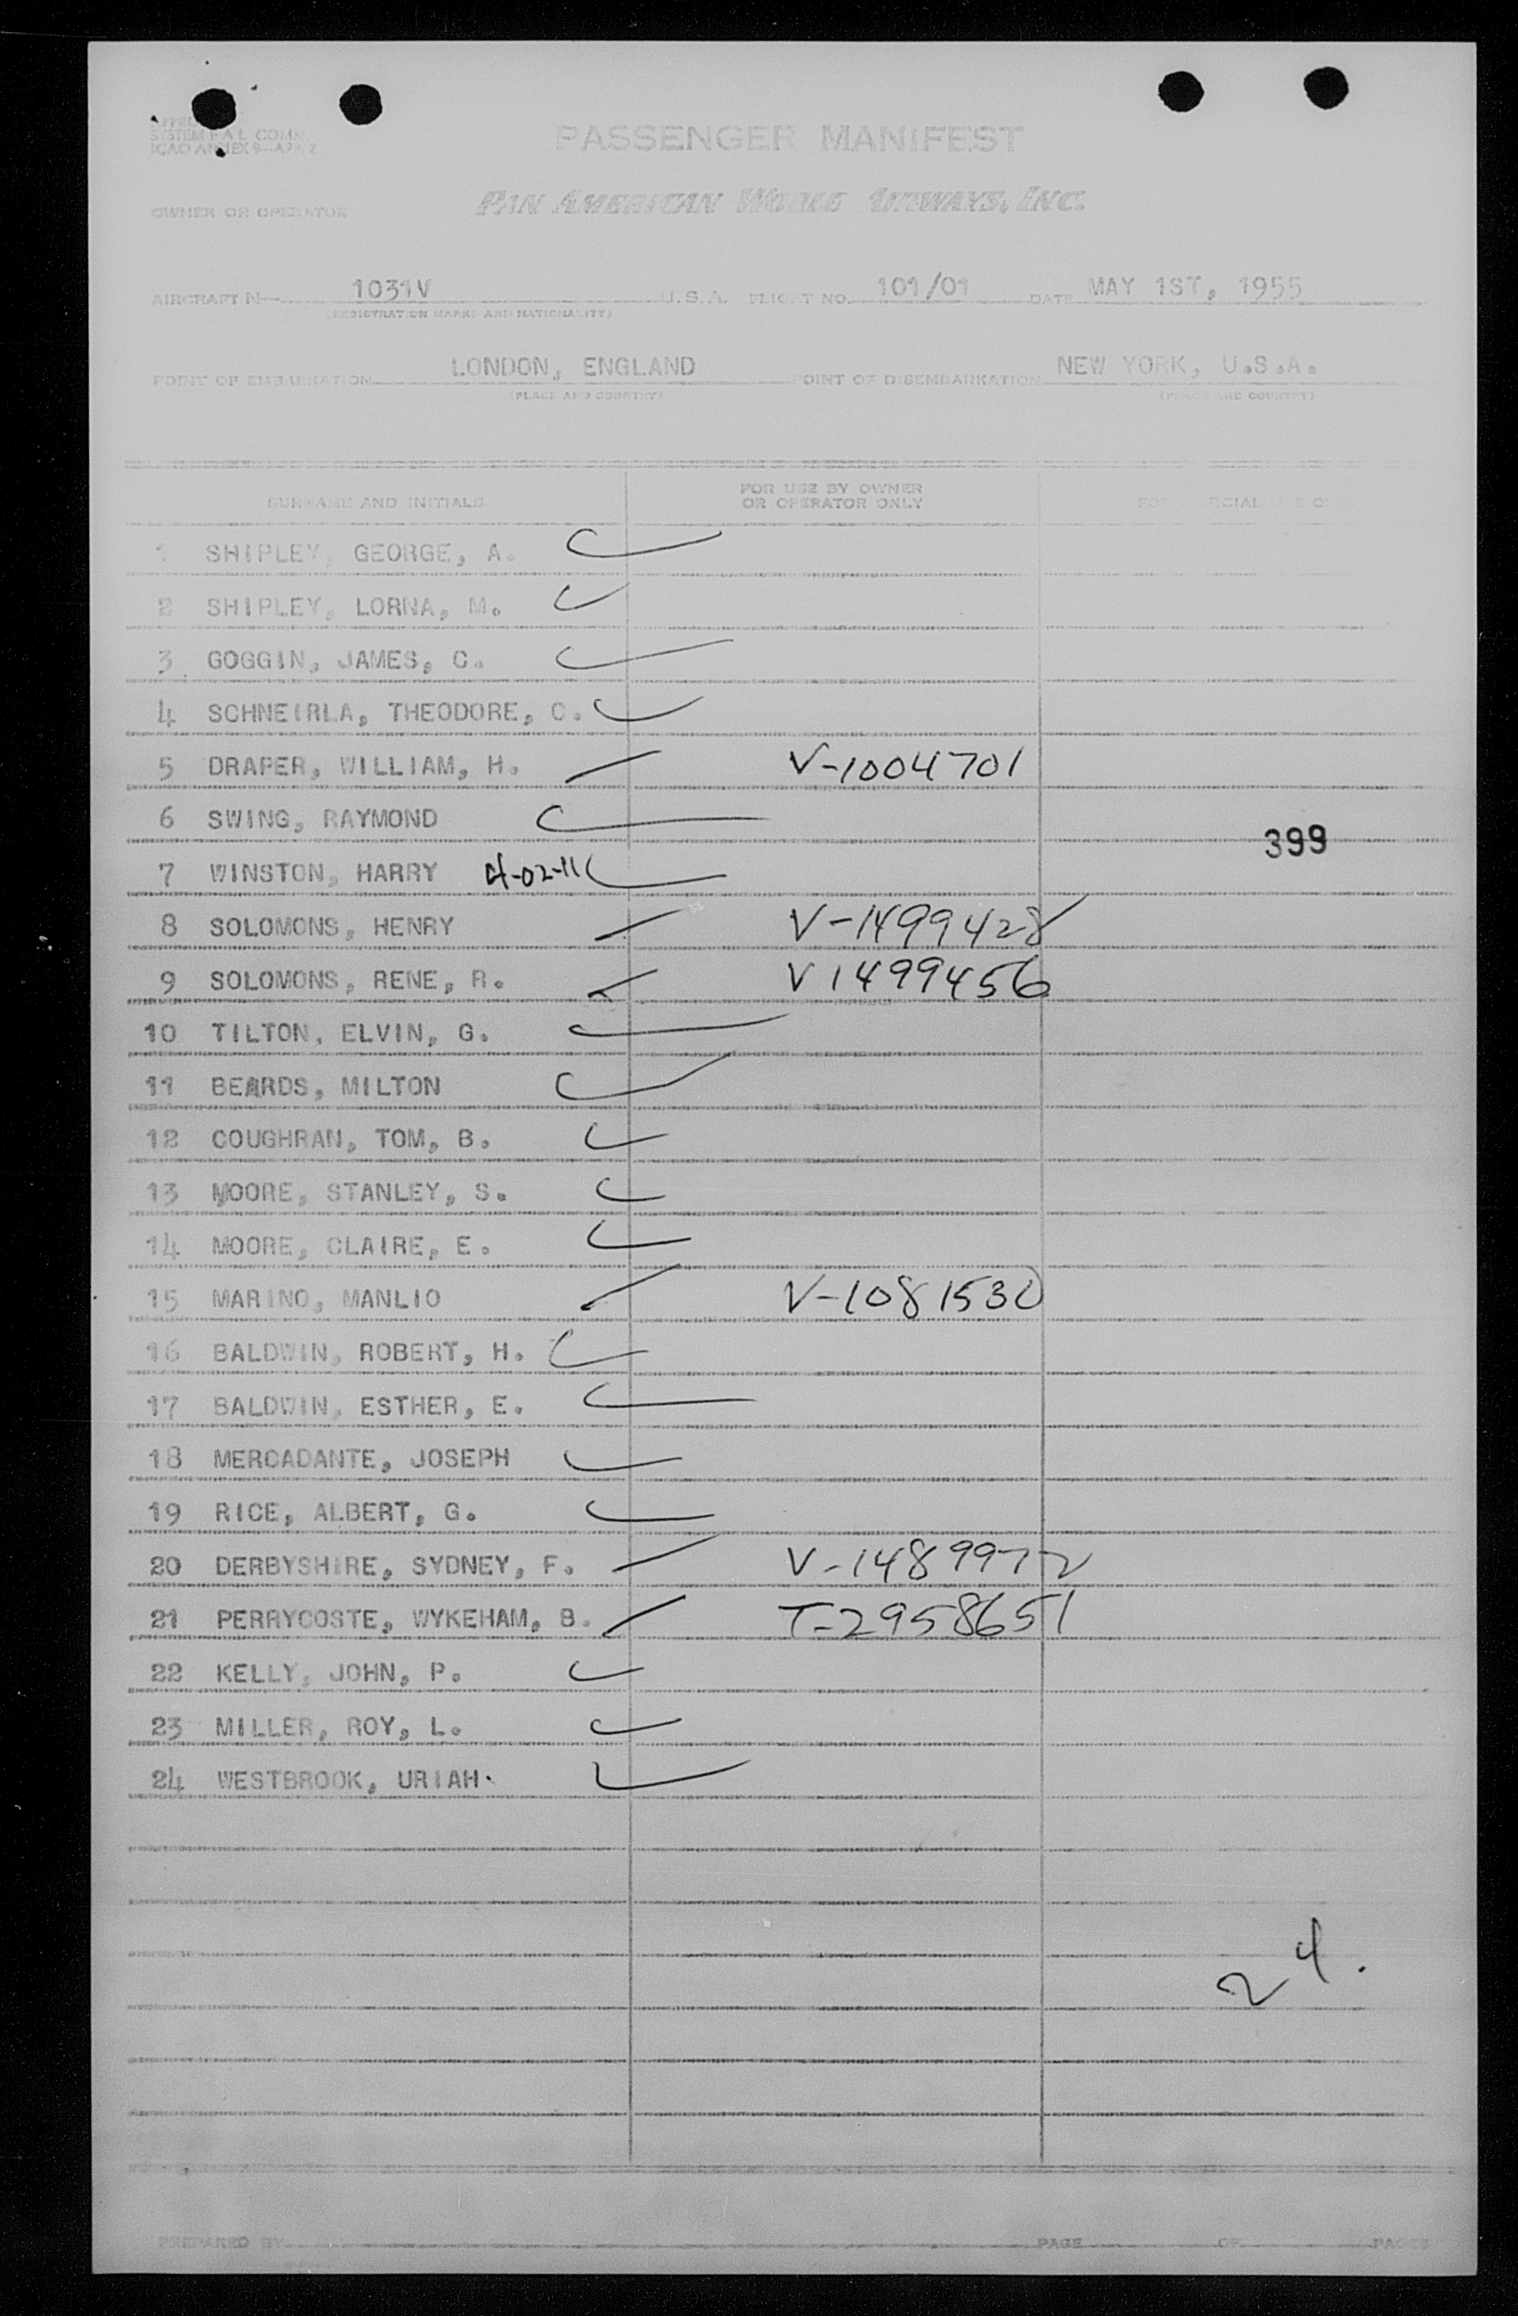 PASSENGER MANIFEST
PAN AMERICAN WORLD AIRWAYS, INC.
OWNER OR OPERATOR
AIRCRAFT N 1031V U.S.A. FLIGHT NO. 101/01 DATE MAY 1ST, 1955
(REGISTRATION MARKS AND NATIONALITY)
POINT OF EMBARKATION LONDON, ENGLAND POINT OF DISEMBARKATION NEW YORK, U.S.A.
(PLACE AND COUNTRY) (PLACE AND COUNTRY)
SURNAME AND INITIALS FOR USE BY OWNER OR OPERATOR ONLY
1 SHIPLEY, GEORGE, A.
2 SHIPLEY, LORNA, M.
3 GOGGIN, JAMES, C.
4 SCHNEIRLA, THEODORE, C.
5 DRAPER, WILLIAM, H. V-1004701
6 SWING, RAYMOND
399
7 WINSTON, HARRY 4-02-11
8 SOLOMONS, HENRY V-1499428
9 SOLOMONS, RENE, R. V1499456
10 TILTON, ELVIN, G.
11 BEARDS, MILTON
12 COUGHRAN, TOM, B.
13 MOORE, STANLEY, S.
14 MOORE, CLAIRE, E.
15 MARINO, MANLIO V-1081530
16 BALDWIN, ROBERT, H.
17 BALDWIN, ESTHER, E.
18 MERCADANTE, JOSEPH
19 RICE, ALBERT, G.
20 DERBYSHIRE, SYDNEY, F. V-1489972
21 PERRYCOSTE, WYKEHAM, B. T-2958651
22 KELLY, JOHN, P.
23 MILLER, ROY, L.
24 WESTBROOK, URIAH.
24.
PREPARED BY PAGE OF PAGES